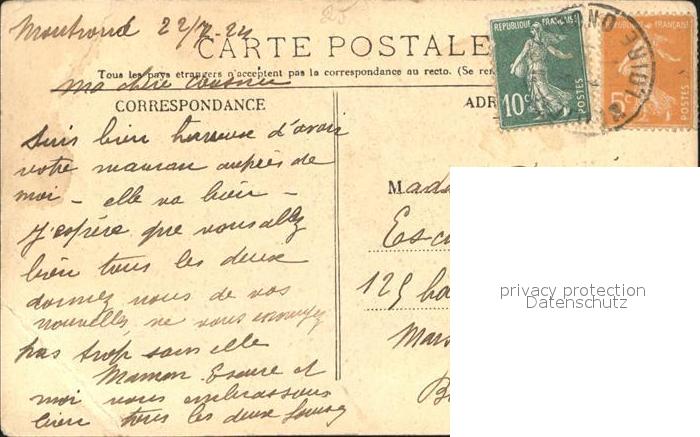 Montrond 22/7.24
CARTE POSTALE
Tous les pays étrangers n'acceptent pas la correspondance au recto. (Se ren
ma chère cousine
CORRESPONDANCE
ADR
RÉPUBLIQUE FRANÇAISE
10c
POSTES
FRANÇAI
5c
POSTES
LOIRE
Suis bien heureuse d'avoir
votre maman auprès de
moi – elle va bien –
J'espère que vous allez
bien tous les deux
donnez nous de vos
nouvelles, ne vous ennuyez
pas trop sans elle
Maman Escure et
moi vous embrassons
bien tous les deux
Mada
Esc
125
Mars
B
privacy protection
Datenschutz